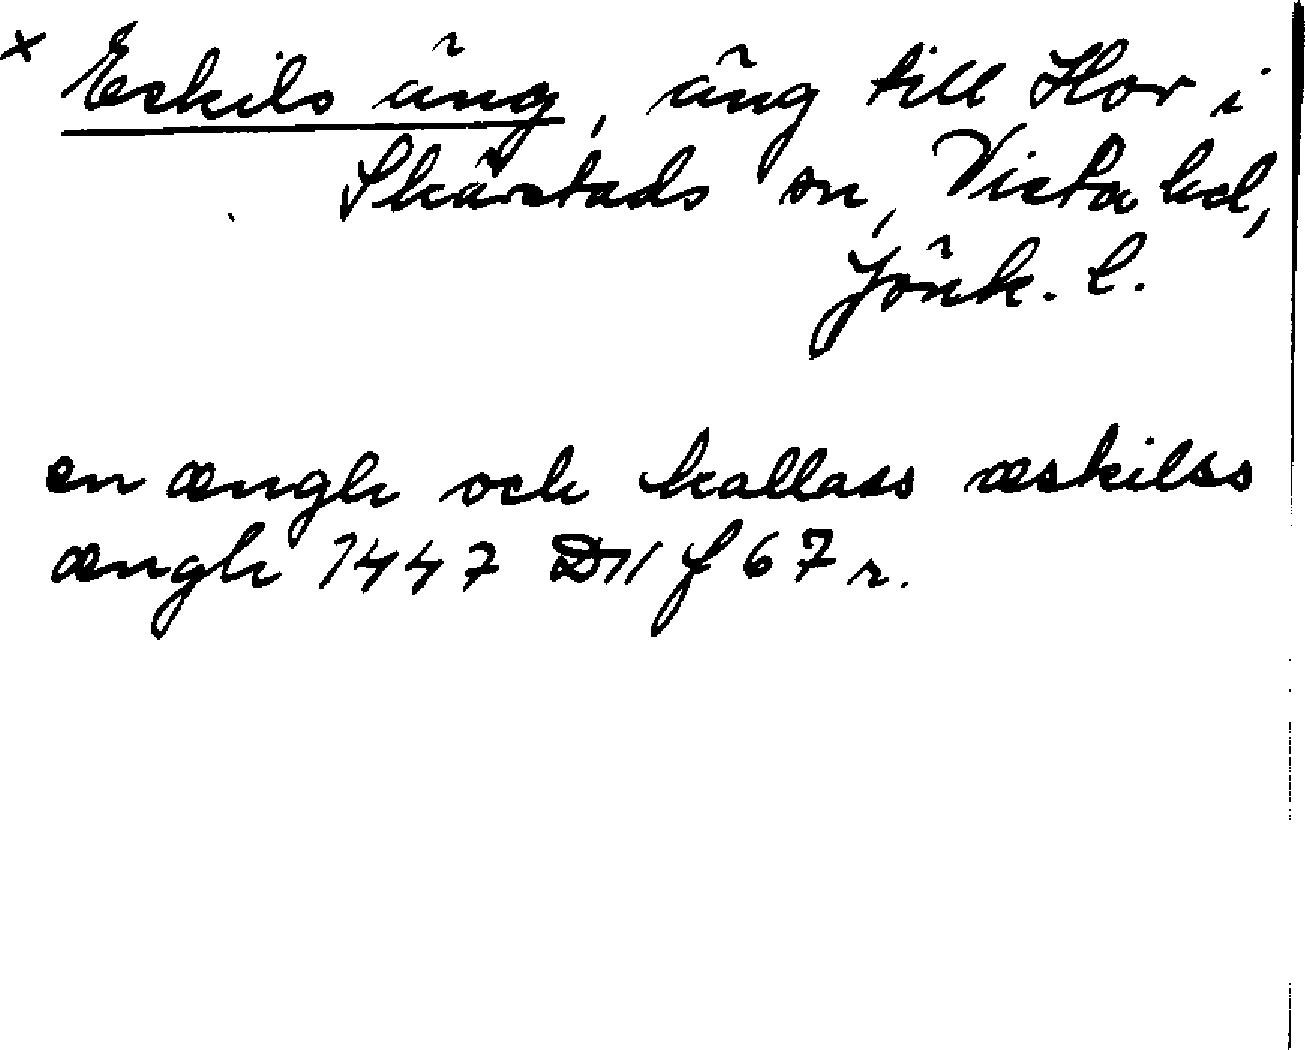 × Eskils äng, äng till Hov i
Skärstads sn, Vista hd,
Jönk. l.
en ængh och kallass æskilss
ængh 1447 D11 f 67 r.